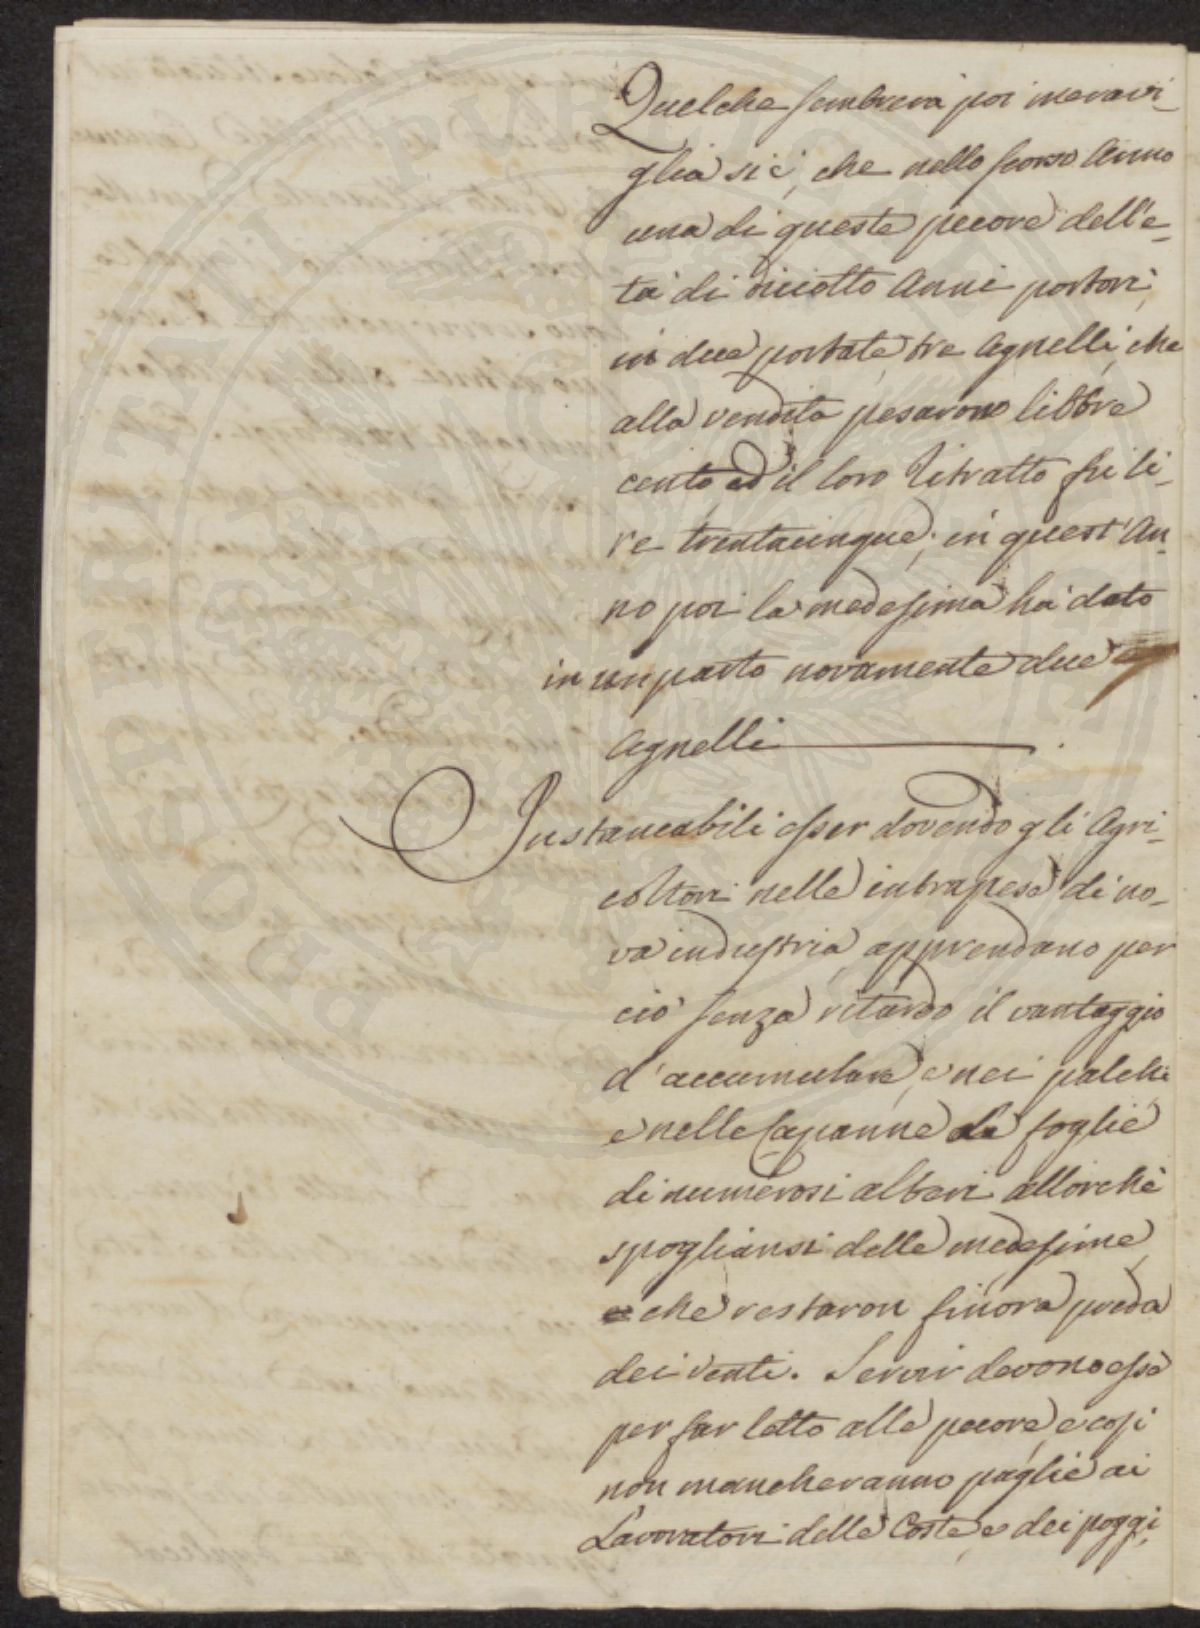 Quelche sembrerà poi meravi-
glia si è, che nello scorso Anno
una di queste pecore dell'e-
tà di diciotto Anni portorì,
in due portate, tre Agnelli, che
alla vendita pesarono libbre
cento, ed il loro Ritratto fù li-
re trentacinque; in quest'An-
no poi la medesima hà dato
in un parto novamente due
Agnelli
Instancabili esser dovendo gli Agri-
coltori nelle intraprese di no-
va industria, apprendano per
ciò senza ritardo il vantaggio
d'accumulare, e nei palchi
e nelle Capanne le foglie
di numerosi alberi allorchè
spogliansi delle medesime,
e che restaron finora preda
dei venti. Servir devono esse
per far letto alle pecore, e così
non mancheranno paglie ai
Lavoratori delle Coste, e dei poggi,
PERITI PUBLICI
PROSPERITATI